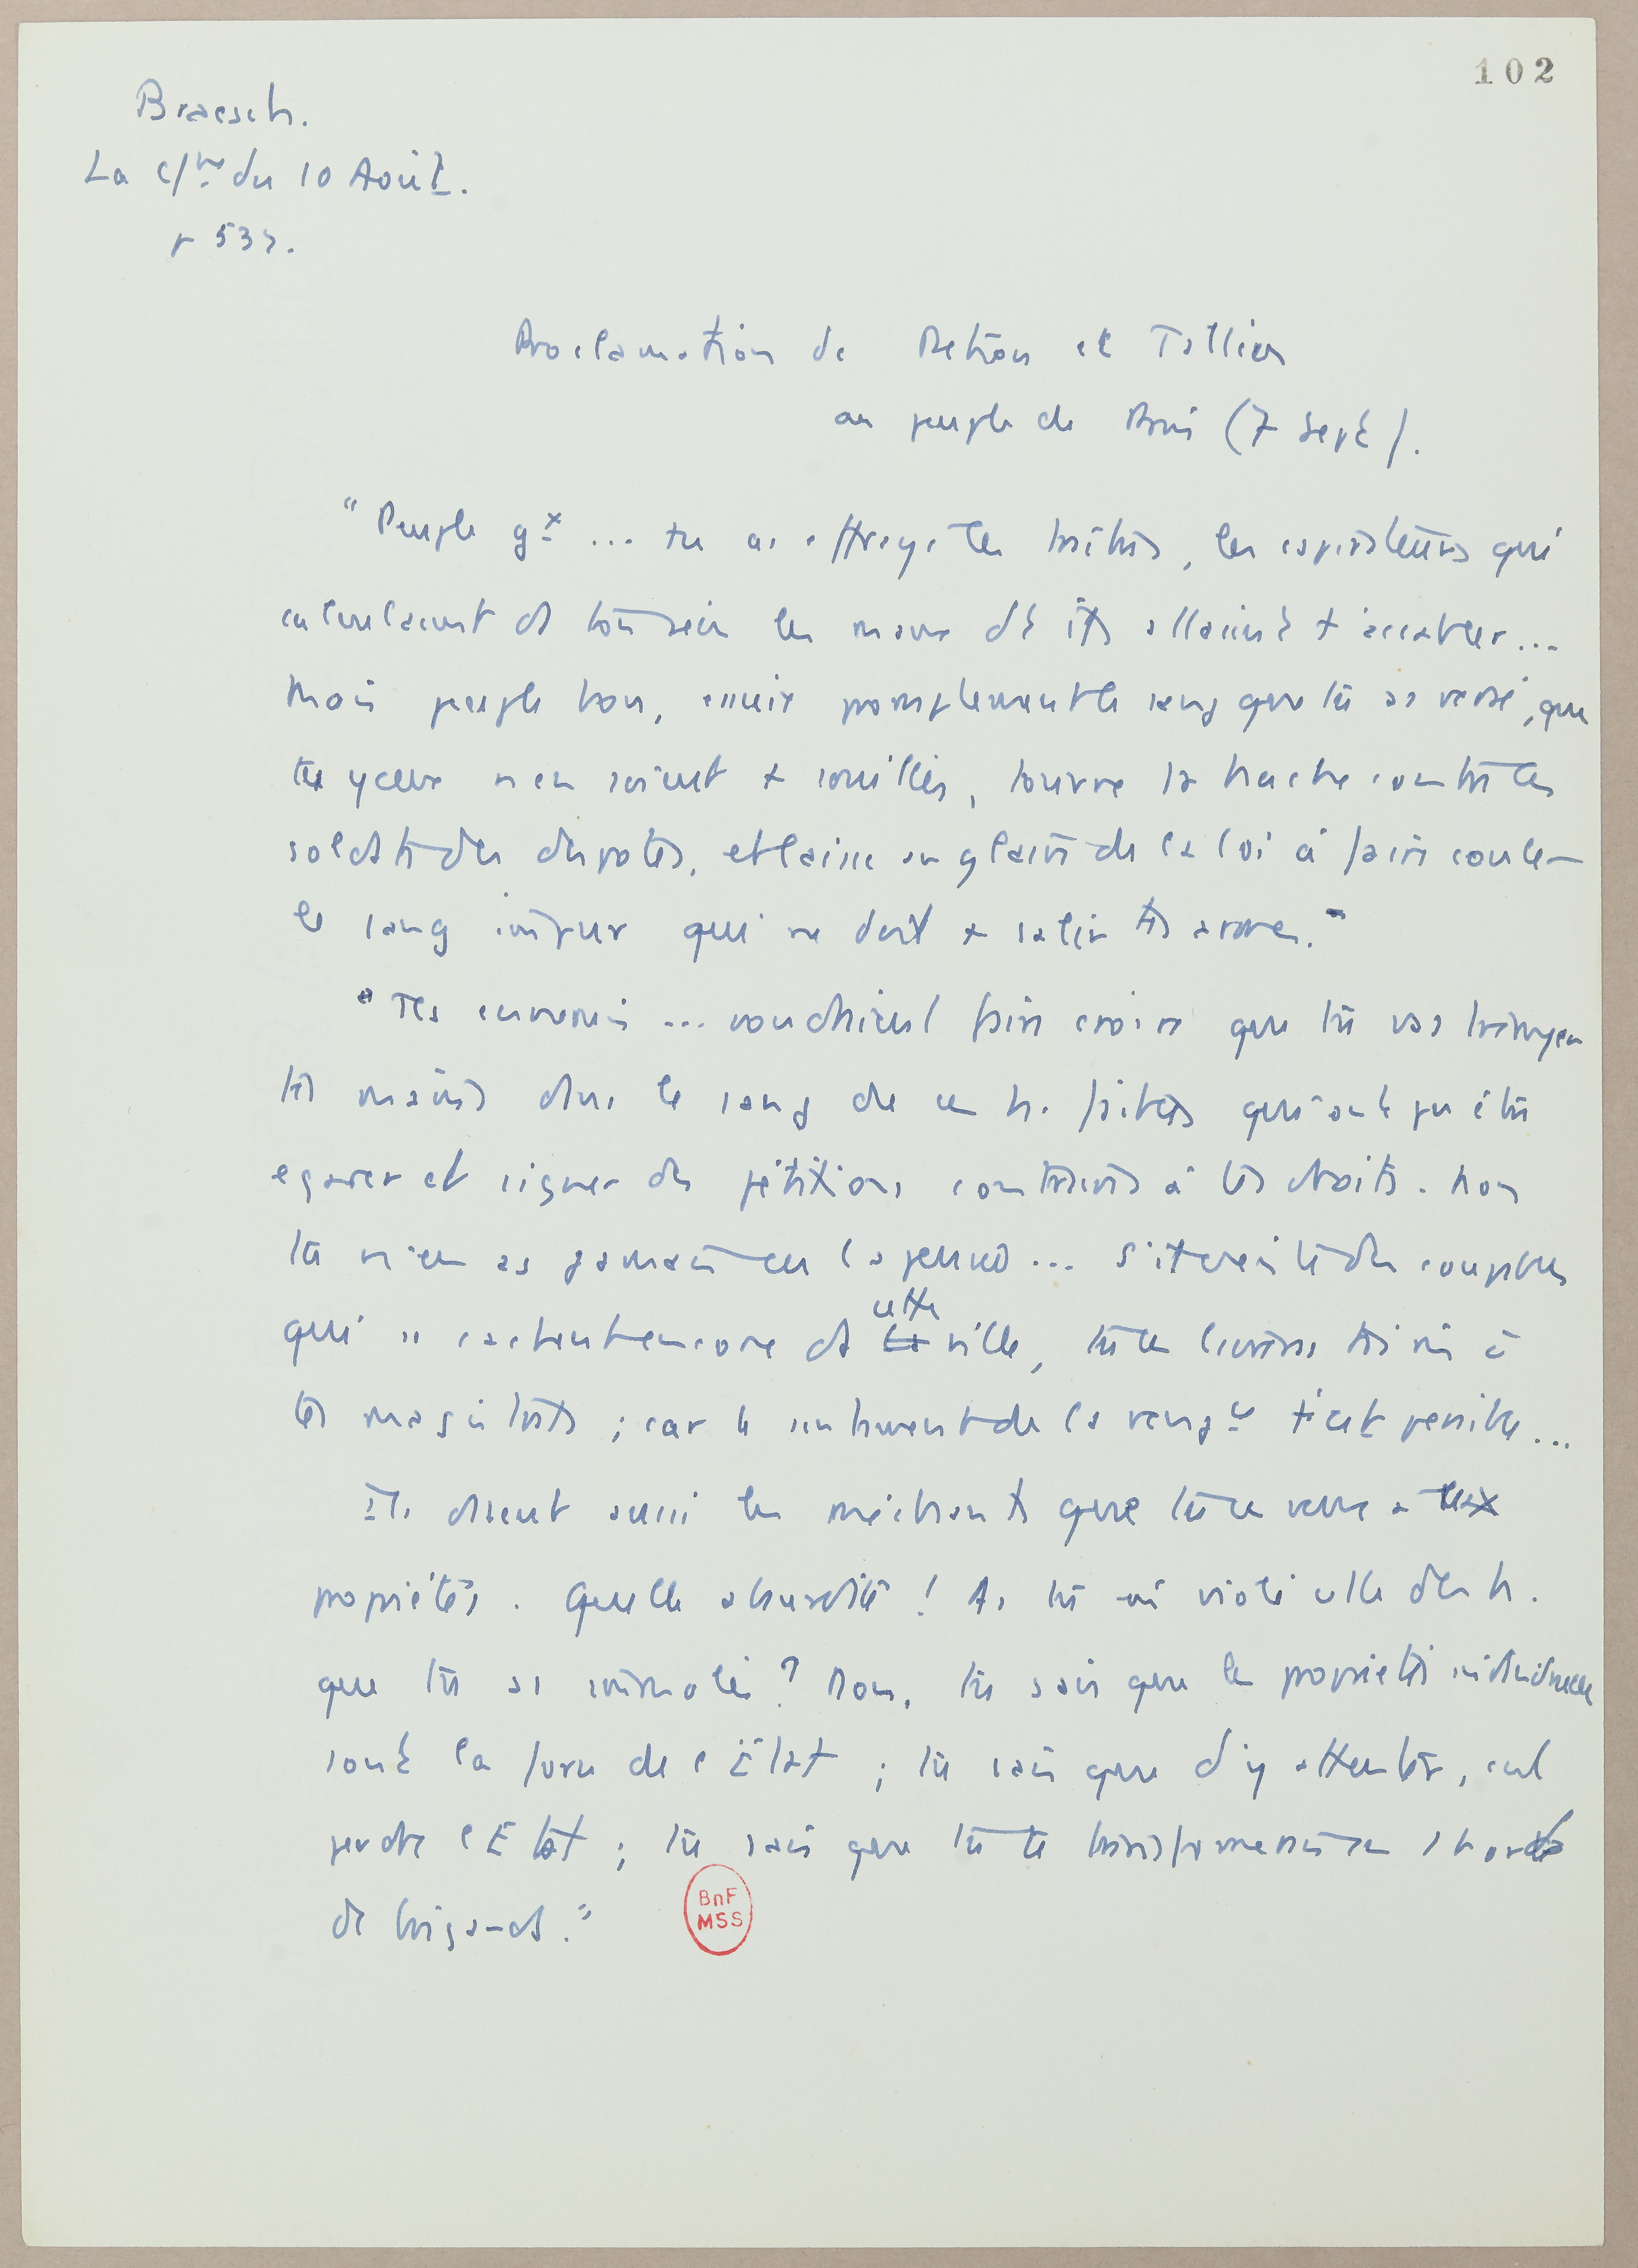 102
Braesch.
La c/ne du 10 Août.
p 532.
Proclamation de Pétion et Tallien
au peuple de Paris (7 Sept).
"Peuple gx ... tu as effrayé les traîtres, les conspirateurs qui
calculaient ds ton sein les maux dt ils allaient t'accabler...
Mais peuple bon, essuie promptement le sang que tu as versé, que
tes yeux n'en soient + souillés, tourne la hache contre les
soldats des despotes, et laisse au glaive de la loi à faire couler
le sang impur qui ne doit + salir tes armes."
"Tes ennemis ... voudraient faire croire que tu vas tremper
tes mains dans le sang de ces h. faibles qui ont pu être
égarés et signer des pétitions contraires à tes droits. Non
tu n'en as jamais eu la pensée ... S'il existe des coupables
qui se cachent encore ds cette ville, tu les livreras toi même à
tes magistrats ; car le sentiment de la vengce t'est pénible...
Ils disent aussi les méchants que tu en veux aux
propriétés. Quelle absurdité ! As tu violé celle des h.
que tu as immolés ? Non, tu sais que les propriétés individuelles
sont la force de l'Etat ; tu sais que d'y attenter, c'est
perdre l'Etat ; tu sais que tu te transformerais en horde
de brigands."
BnF
MSS